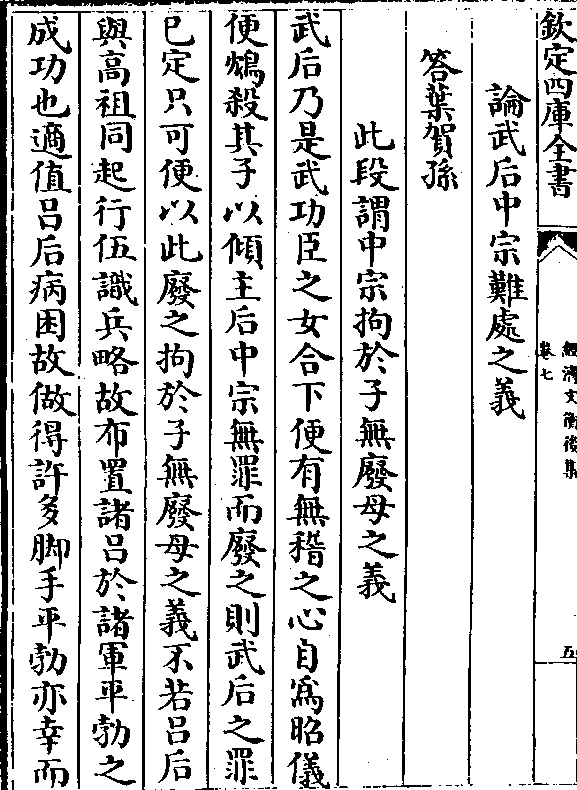 欽定四庫全書
經濟文衡後集
卷七
五
論武后中宗難處之義
答葉賀孫
此段謂中宗拘於子無廢母之義
武后乃是武功臣之女合下便有無稽之心自為昭儀
便鴆殺其子以傾主后中宗無罪而廢之則武后之罪
已定只可便以此廢之拘於子無廢母之義不若吕后
與高祖同起行伍識兵略故布置諸吕於諸軍平勃之
成功也適值吕后病困故做得許多脚手平勃亦幸而